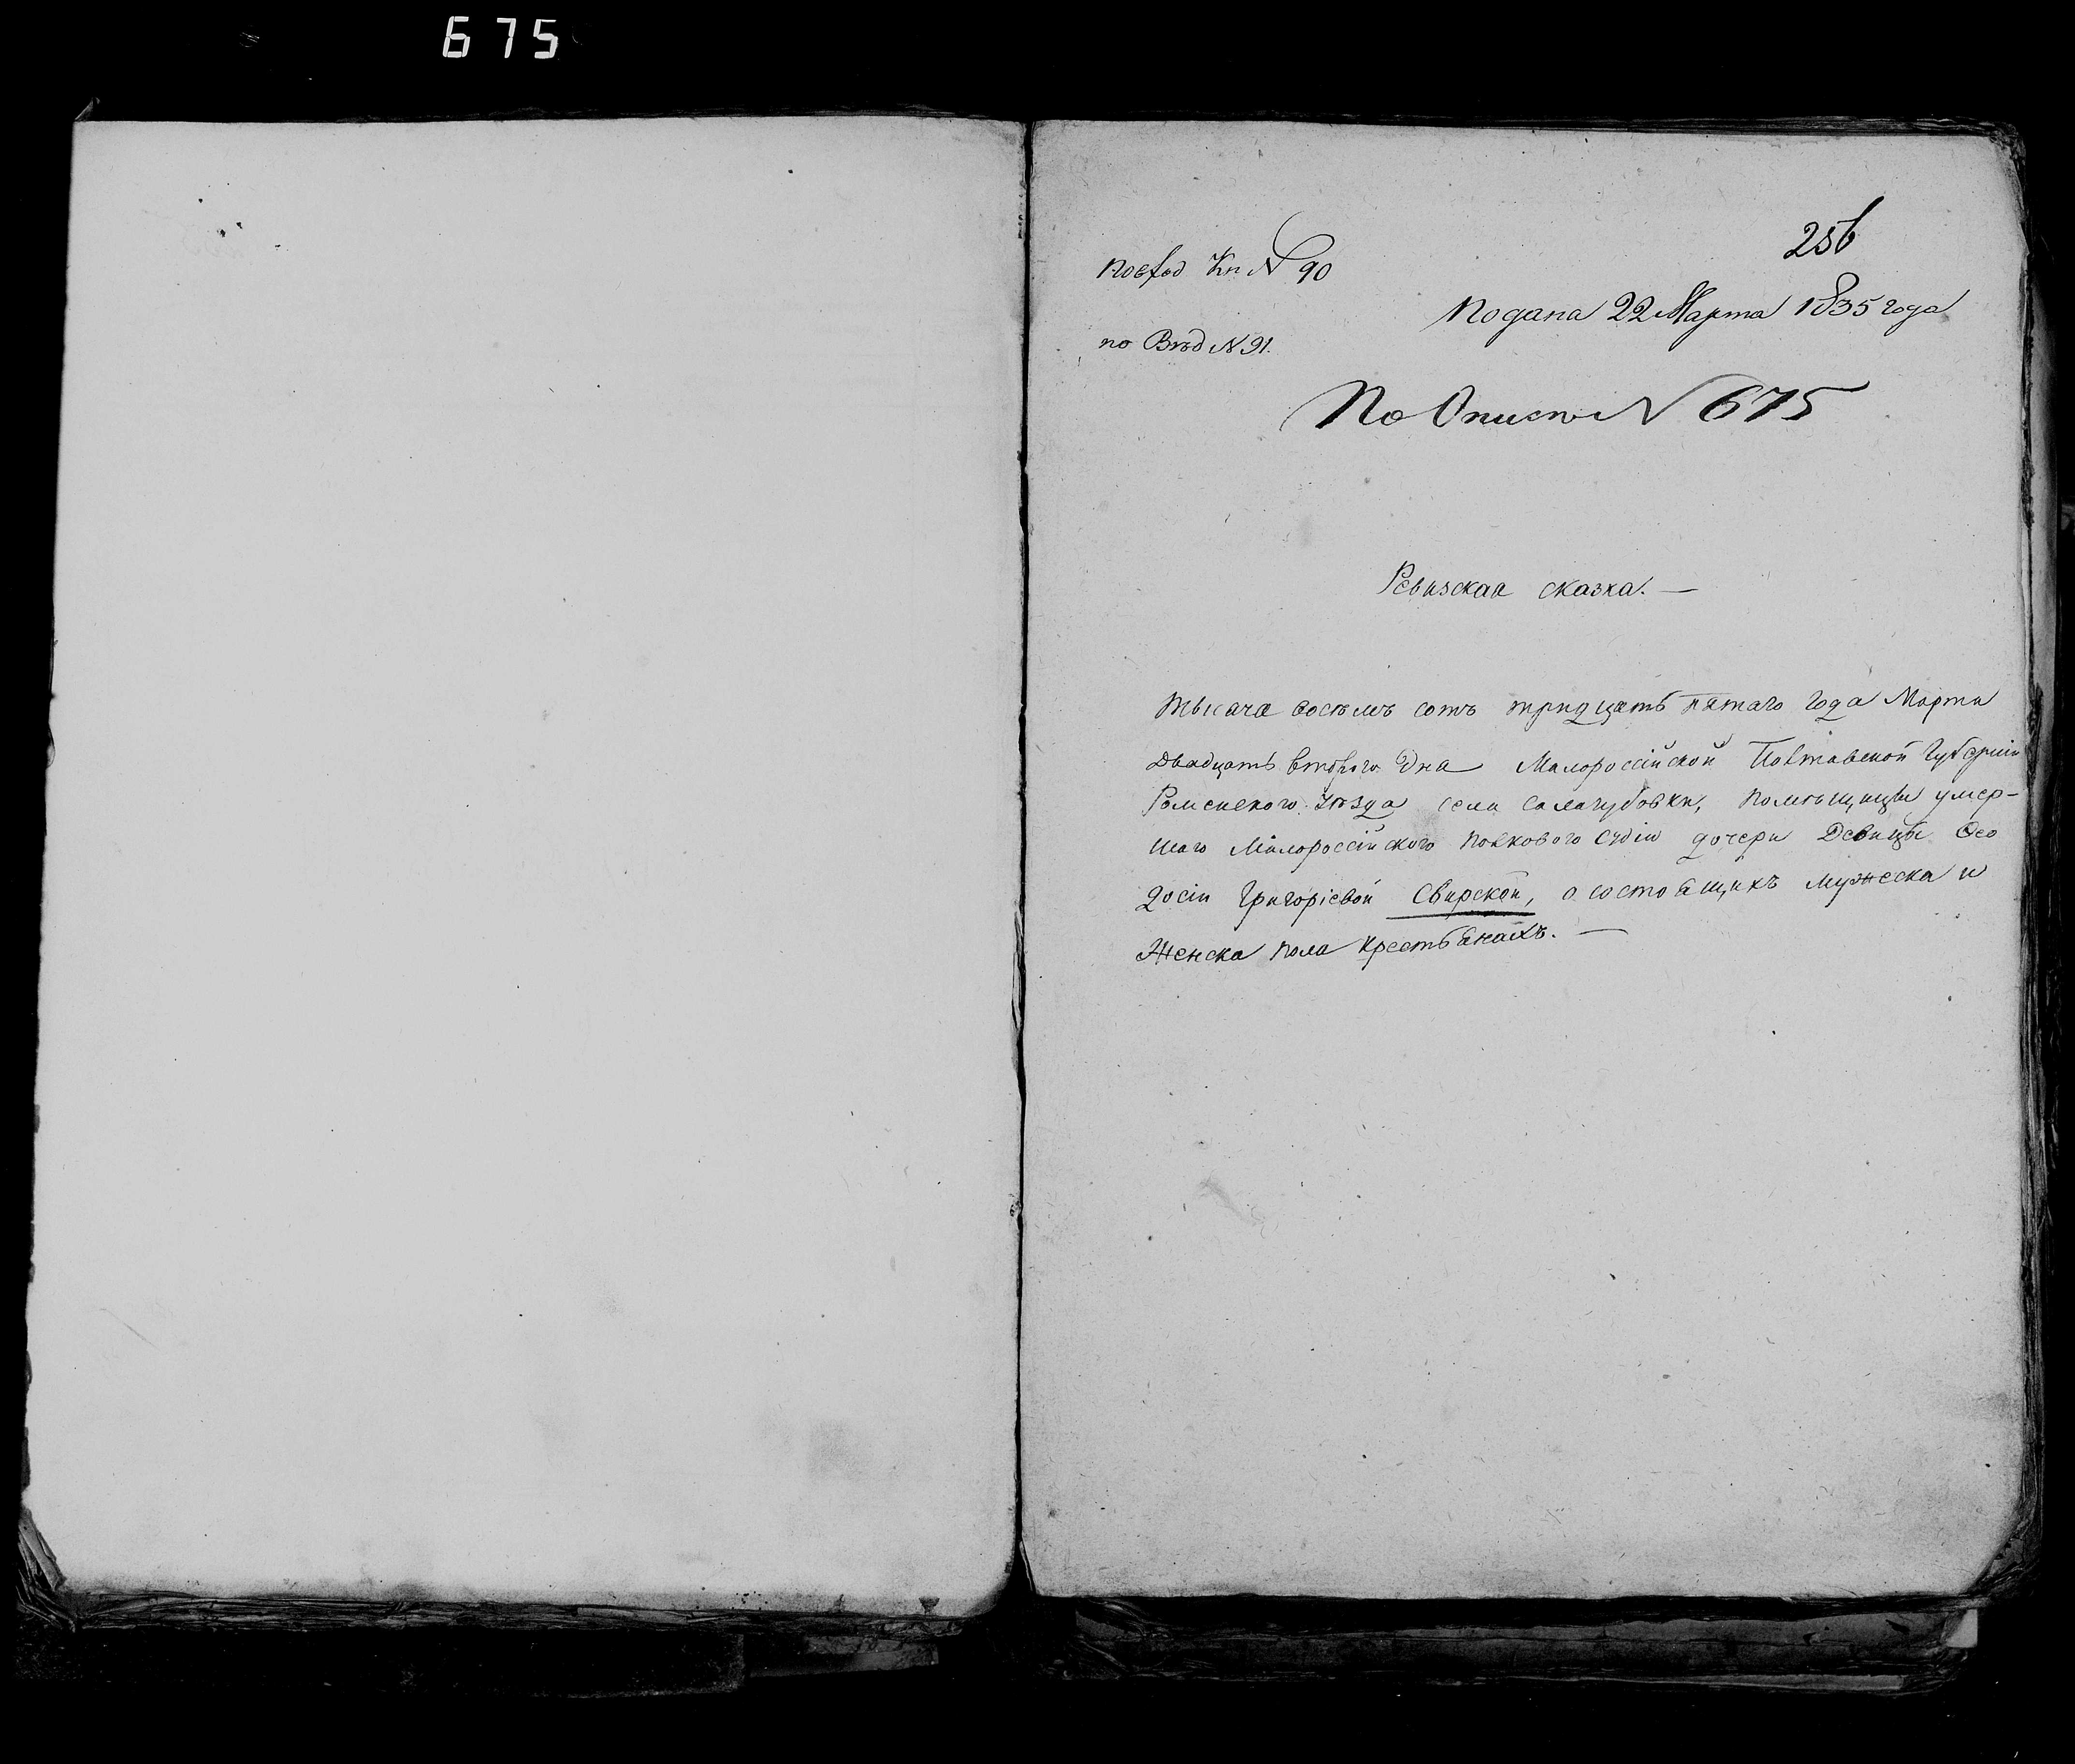 675
256
по Вход Кн № 90
Подана 22 Марта 1835 года
по Вѣд № 91.
По Описи № 675
Ревизская сказка. —
Тысяча восѣмъ сотъ тридцать пятаго года Марта
двадцать второго дня Малороссійской Полтавской Губерніи
Роменского уѣзда села Салогубовки, помѣщицы умер-
шаго Малороссійского полкового судіи дочери Девицы Ѳео
досіи Григоріевой Свирской, о состоящихъ мужеска и
Женска пола крестьянахъ. —